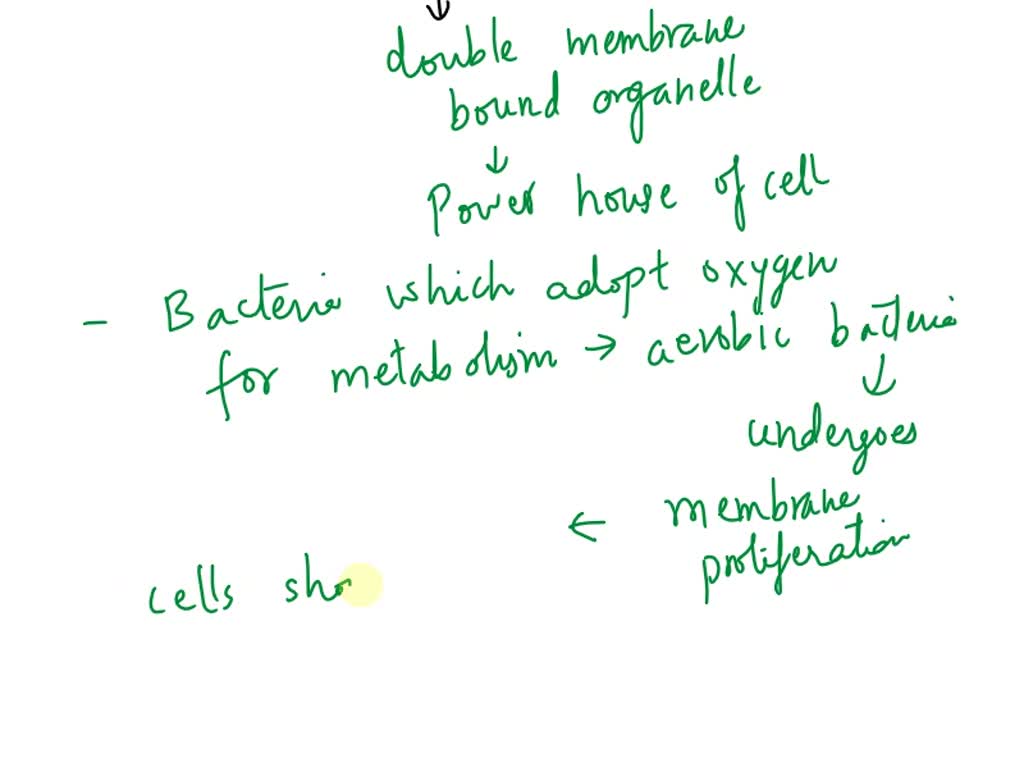 ↓
double membrane
bound organelle
↓
Power house of cell
- Bacteria which adopt oxygen
for metabolism → aerobic bacteria
↓
undergoes
← membrane
proliferation
cells sho